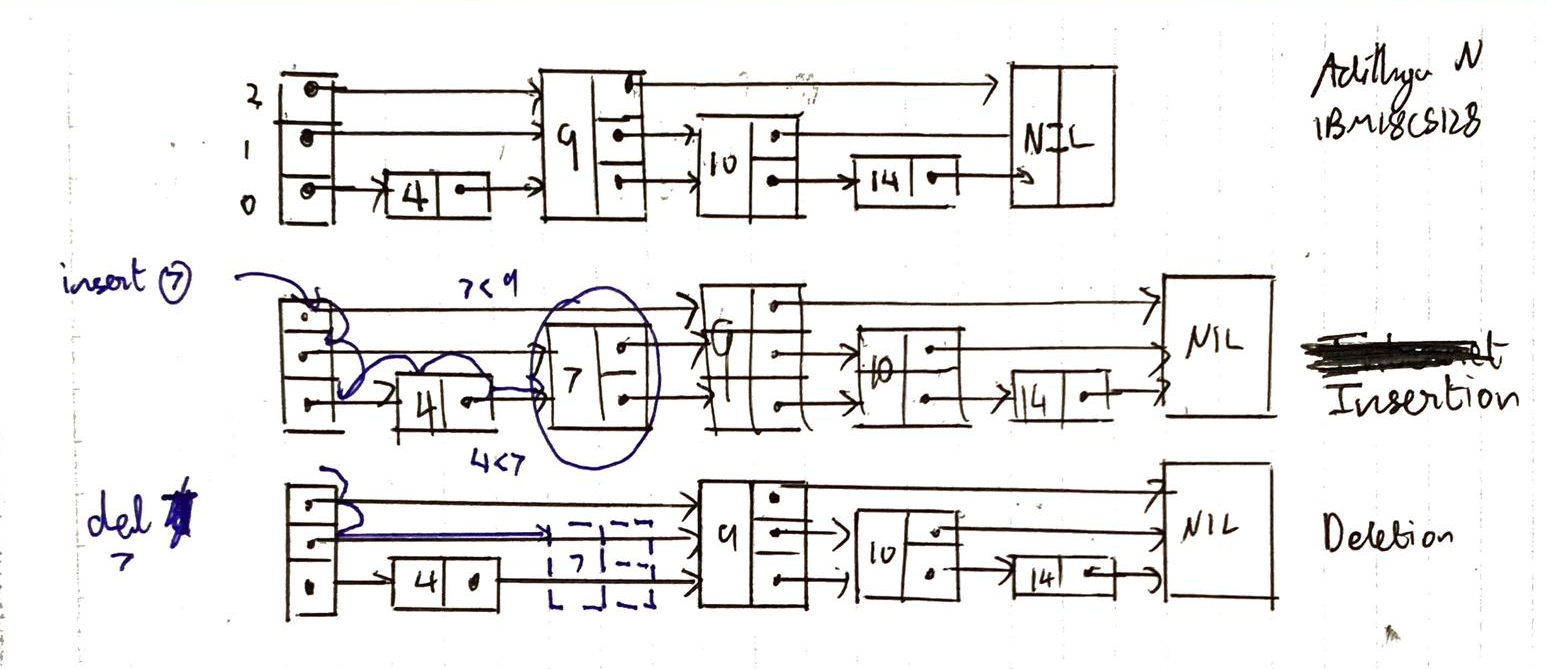 Adithya N
1BM18CS128
2
1
0
4
9
10
14
NIL
insert 7
7<9
4
7
9
10
14
NIL
Insertion
4<7
del
7
4
7
9
10
14
NIL
Deletion